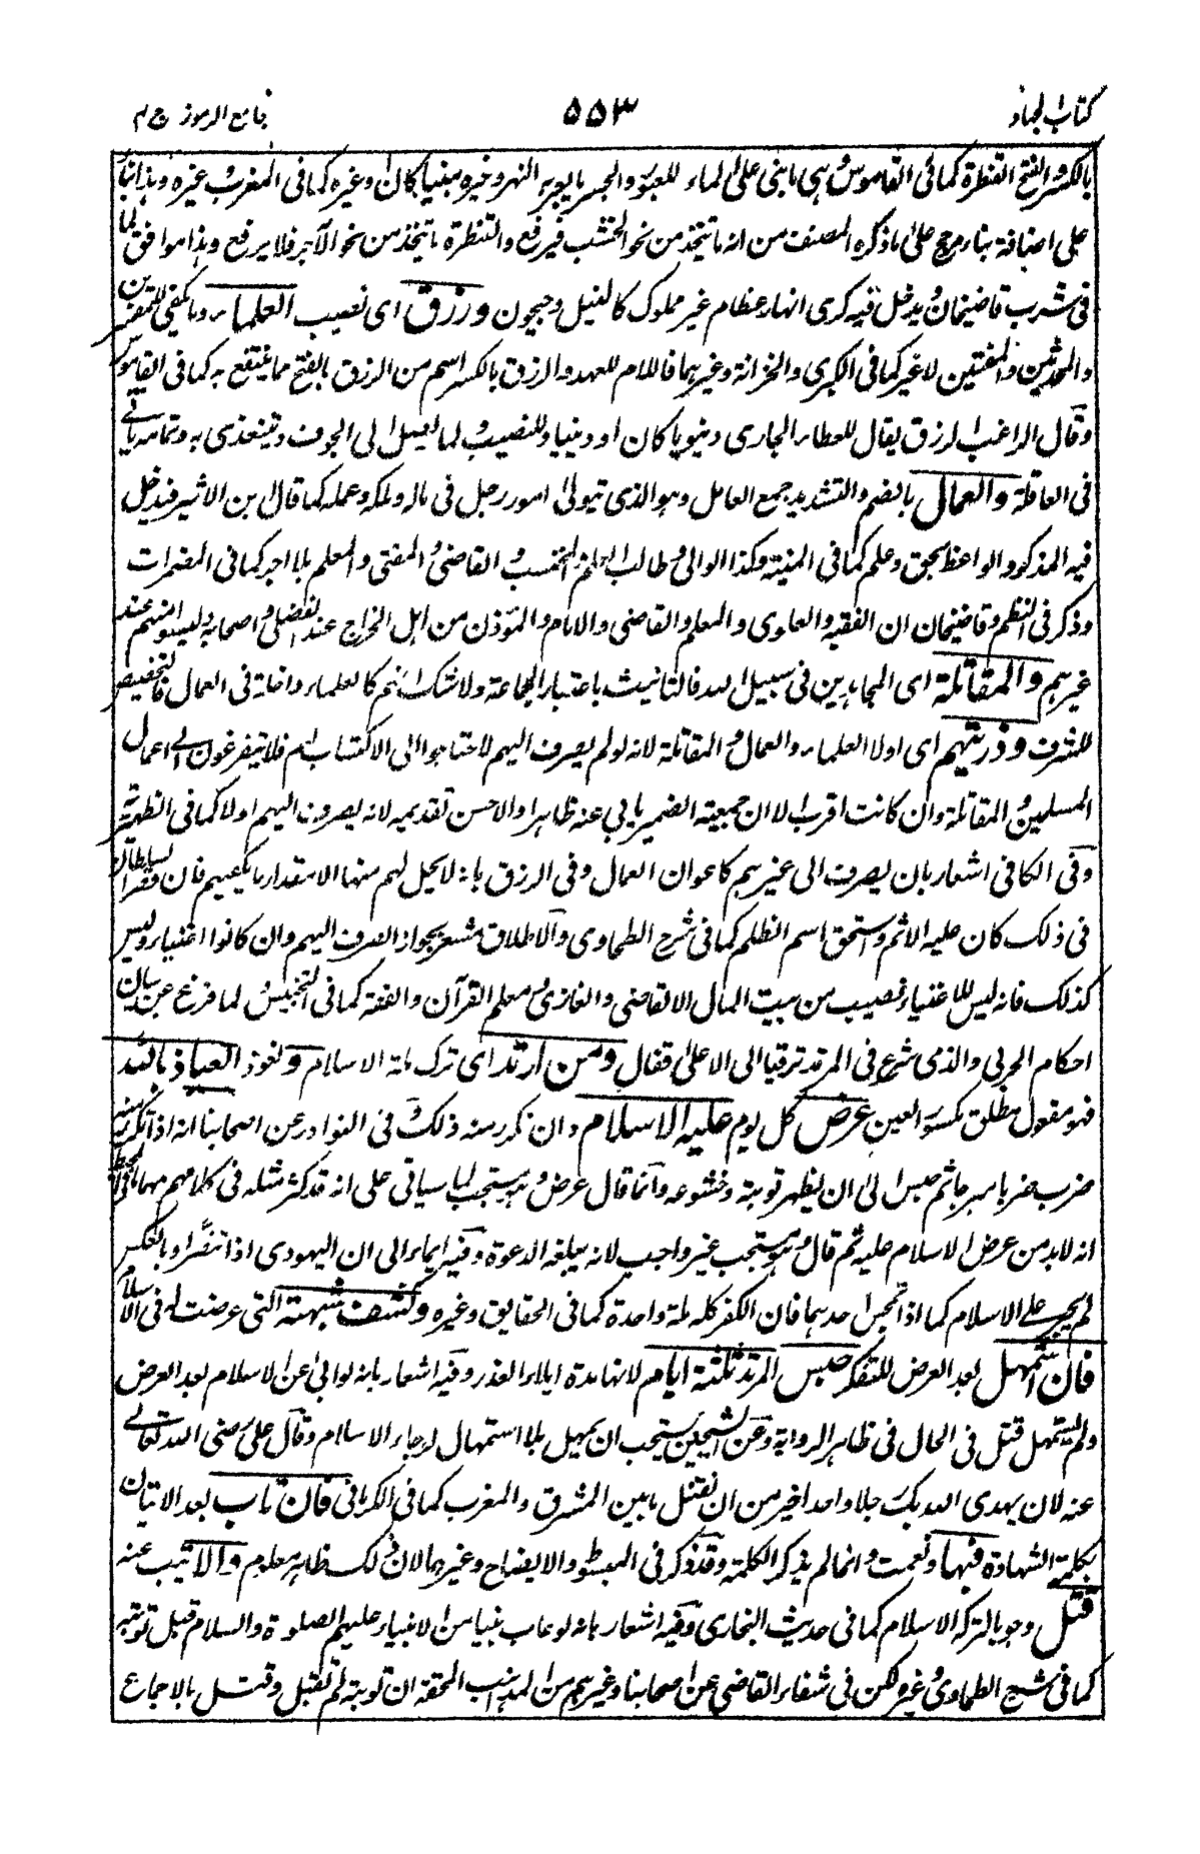 كتاب الجهاد ٥٥٣ جامع الرموز ج م
بالكسر والفتح القنطرة كما فى القاموس وهى ما يبنى على الماء للعبور والجسر ما يعبر به النهر وغيره مبنيا كان او غيره كما فى المغرب وغيره وبهذا
على اضافة بناء مرجح على ما ذكره المصنف من انه ما يتخذ من نحو الخشب فيرفع والقنطرة ما يتخذ من نحو الآجر فلا يرفع وهذا موافق لما
فى شرب قاضيخان ويدخل فيه كرى انهار عظام غير مملوك كالنيل وجيحون ورزق اى نصيب العلماء وما يكفى للمفسرين
والمحدثين والمفتين لا غير كما فى الكبرى والخزانة وغيرهما فاللام للعهد والرزق بالكسر اسم من الرزق بالفتح ما ينتفع به كما فى القاموس
وقال الراغب الرزق يقال للعطاء الجارى دنيويا كان او دينيا وللنصيب ولما يصل الى الجوف ويتغذى به وتمامه يأتى
فى العاقلة والعمال بالضم والتشديد جمع العامل وهو الذى يتولى امور رجل فى ماله وملكه وعمله كما قال ابن الاثير فيدخل
فيه المذكر والواعظ بحق وعلم كما فى المنية وكذا الوالى وطالب العلم والمحتسب والقاضى والمفتى والمعلم بلا اجر كما فى المضمرات
وذكر فى النظم وقاضيخان ان الفقيه والعلوى والمعلم والقاضى والامام والمؤذن من اهل الخراج عند الفضلى واصحابه وليسوا منهم عند
غيرهم والمقاتلة اى المجاهدين فى سبيل الله فالتانيث باعتبار الجماعة ولا شك انهم كالعلماء داخلة فى العمال فالتخصيص
للشرف وذريتهم اى اولاد العلماء والعمال والمقاتلة لانه لو لم يصرف اليهم لاحتاجوا الى الاكتساب لهم فلا يتفرغون الى اعمال
المسلمين والمقاتلة وان كانت اقرب الا ان جمعية الضمير يابى عنه ظاهرا والاحسن تقديمه لانه يصرف اليهم اولا كما فى الظهيرية
وفى الكافى اشعار بان يصرف الى غيرهم كاعوان العمال وفى الرزق بانه لا يحل لهم منها الا مقدار ما يكفيهم فان قصر السلطان
فى ذلك كان عليه الاثم واستحق اسم الظلم كما فى شرح الطحاوى والاطلاق مشعر بجواز الصرف اليهم وان كانوا اغنياء وليس
كذلك فانه ليس للاغنياء نصيب من بيت المال الا لقاضى والغازى ومعلم القرآن والفقه كما فى التجنيس لما فرغ عن بيان
احكام الحربى والذمى شرع فى المرتد ترقيا الى الاعلى فقال ومن ارتد اى ترك ملة الاسلام ونعوذ العياذ بالله
فهو مفعول مطلق بكسر العين عرض كل يوم عليه الاسلام وان تكرر منه ذلك وفى النوادر عن اصحابنا انه اذا تكرر منه
ضرب ضربا مبرحا ثم حبس الى ان يظهر توبته وخشوعه وانما قال عرض وهو مستحب لما سياتى على انه قد كثر مثله فى كلامهم
انه لا بد من عرض الاسلام عليه ثم قال هو مستحب غير واجب لانه يبلغه الدعوة وفيه ايماء الى ان اليهودى اذا تنصر او بالعكس
لم يجبر على الاسلام كما اذا تمجس احدهما فان الكفر كله ملة واحدة كما فى الحقايق وغيره وكشف شبهته التى عرضت له فى الاسلام
فان استمهل بعد العرض للتفكر حبس المرتد ثلثة ايام لانها مدة ابلاء العذر وفيه اشعار بانه لو ابى عن الاسلام بعد العرض
ولم يستمهل قتل فى الحال فى ظاهر الرواية وعن الشيخين يستحب ان يمهل بلا استمهال لرجاء الاسلام وقال على رضى الله تعالى
عنه لان يهدى الله بك رجلا واحدا خير من ان تقتل ما بين المشرق والمغرب كما فى الكرمانى فان تاب بعد الاتيان
بكلمة الشهادة فبها ونعمت وانما لم يذكر الكلمة وقد ذكر فى المبسوط والايضاح وغيرهما لان ذلك ظاهر معلوم والا يتب عنه
قتل وجوبا لتركه الاسلام كما فى حديث البخارى وفيه اشعار بانه لو عاب نبيا من الانبياء عليهم الصلوة والسلام قبل توبته
كما فى شرح الطحاوى وغيره لكن فى شفاء القاضى عن اصحابنا وغيرهم من المذاهب الحقة ان توبته لم تقبل وقتل بالاجماع